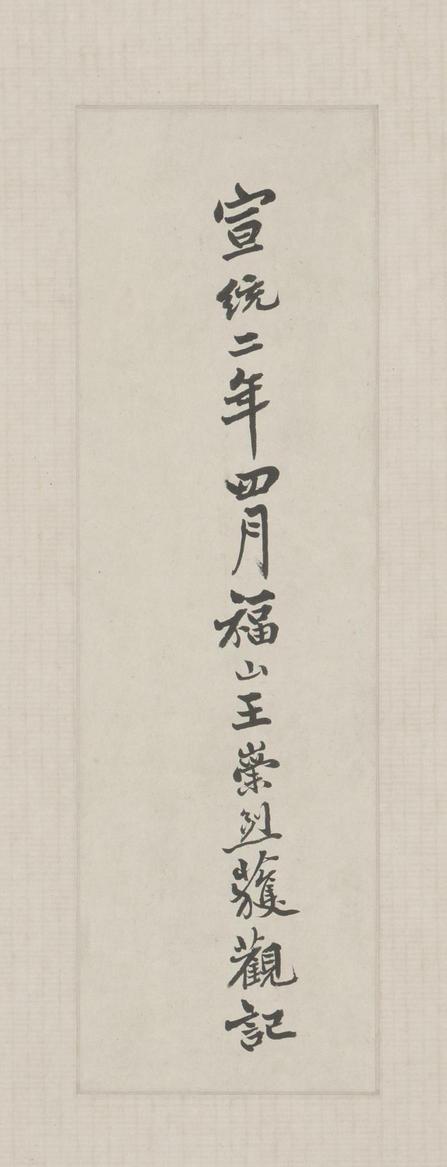 宣統二年四月福山王崇烈獲觀記